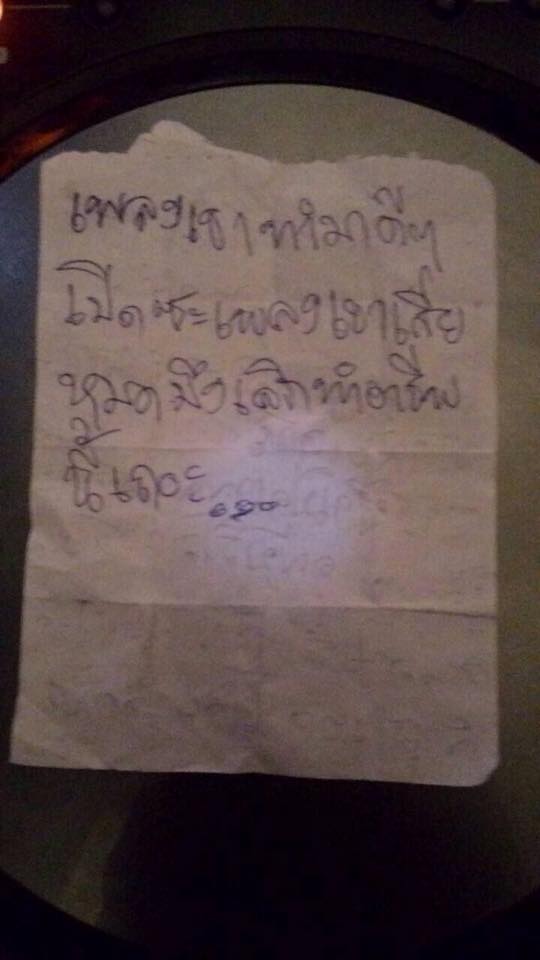 เพลงเขาทำมาดีๆ
เปิดซะเพลงเขาเสีย
หมดมึงเลิกทำอาชีพ
นี้เถอะ...